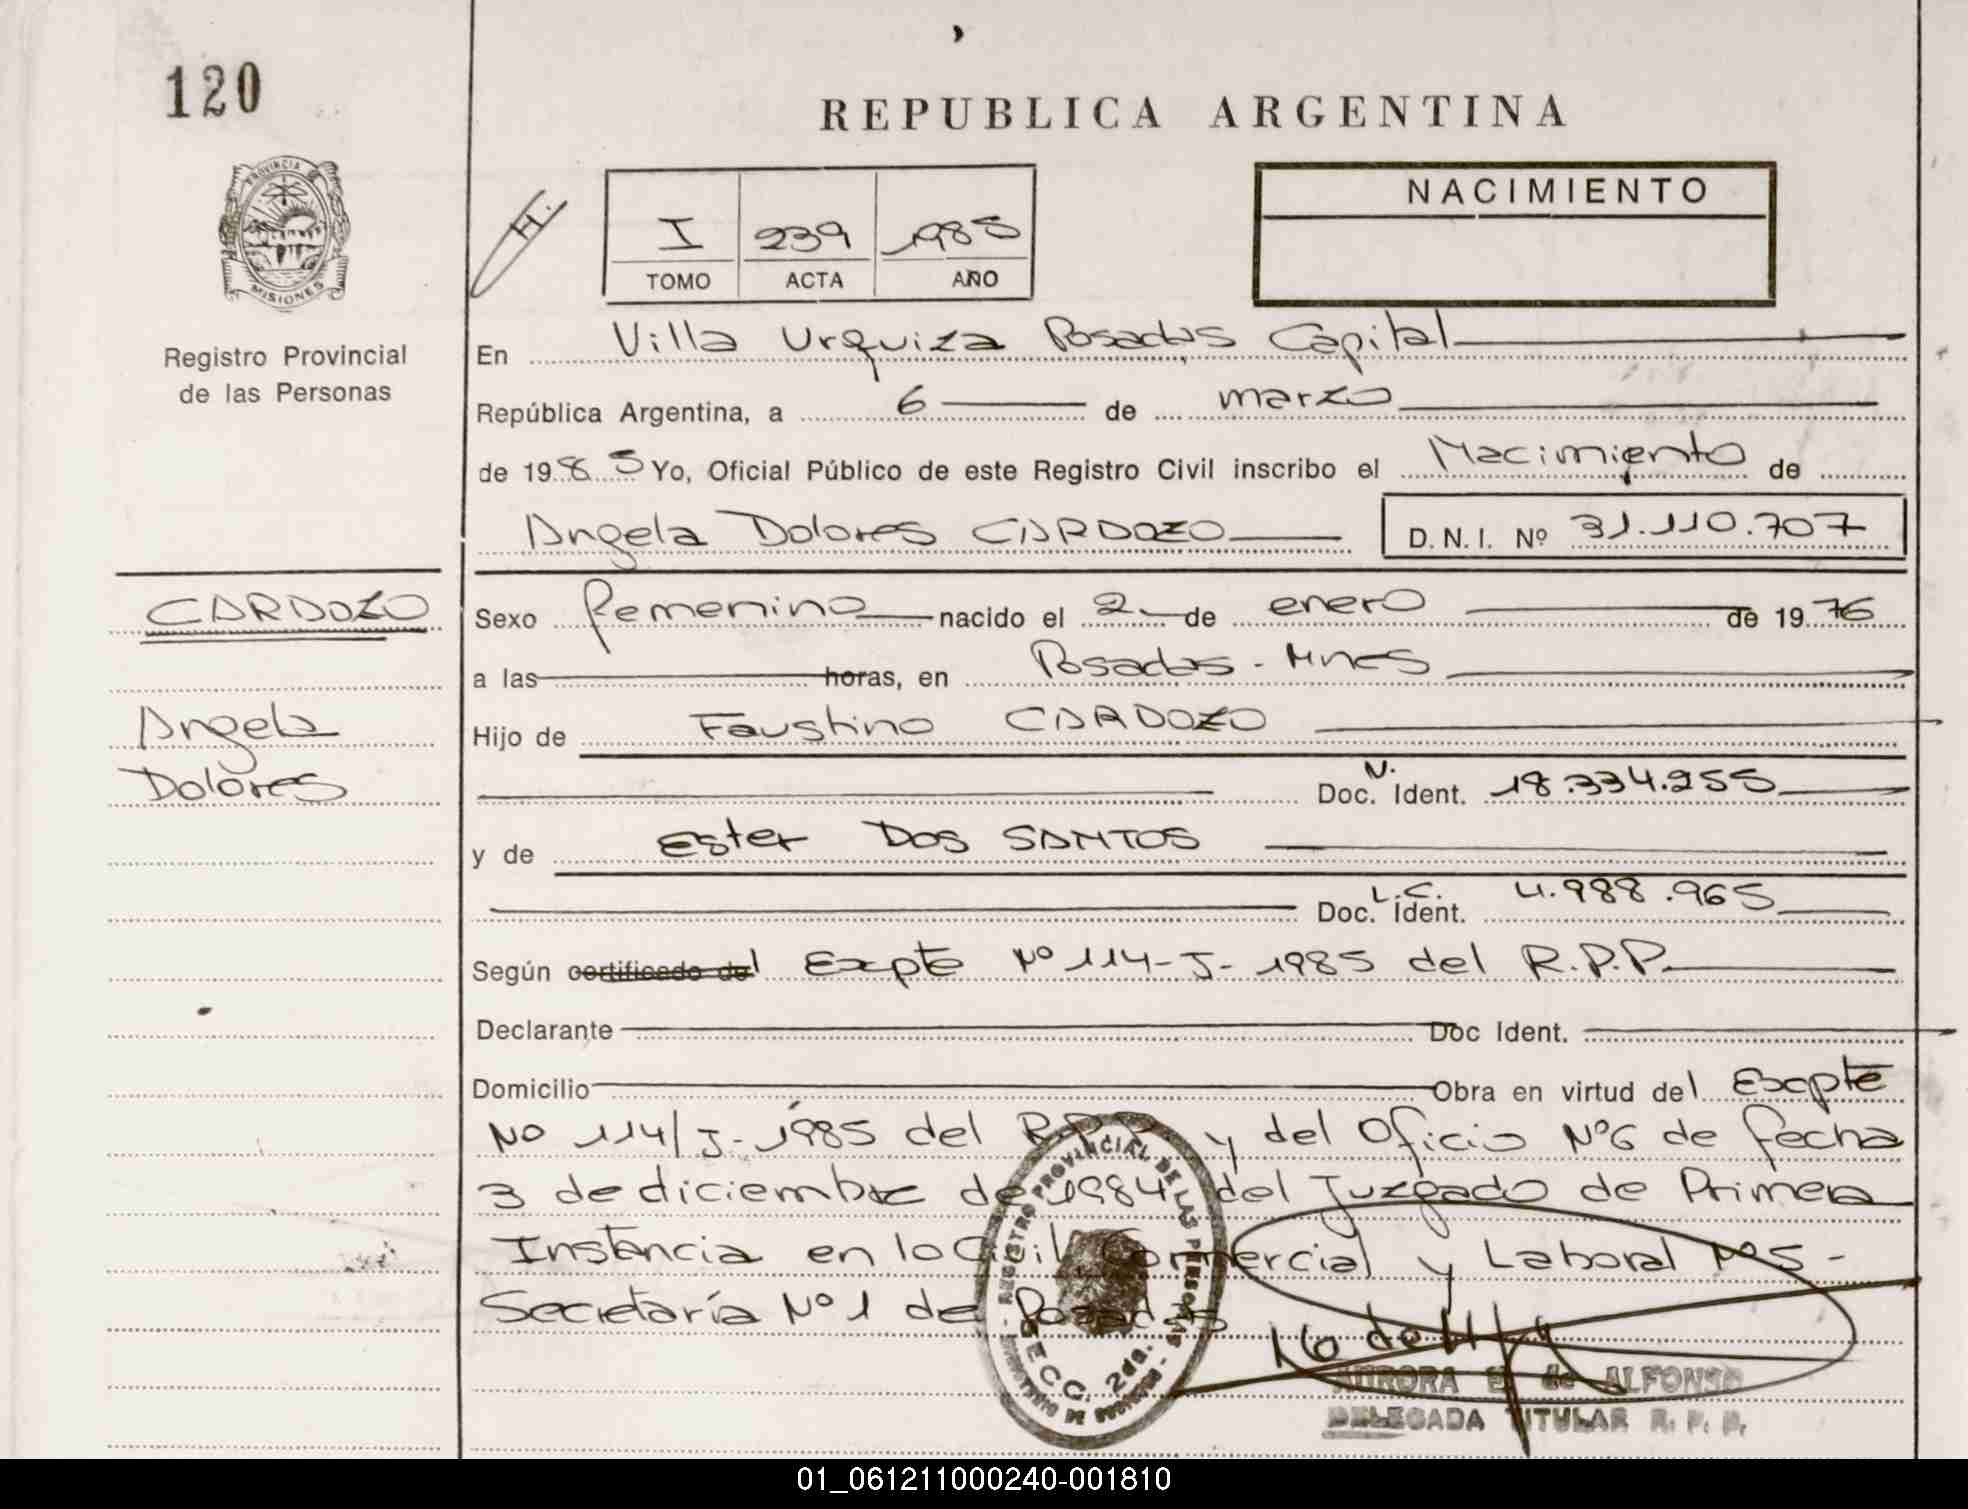 120
REPUBLICA ARGENTINA
PROVINCIA DE
MISIONES
Registro Provincial
de las Personas
I 239 1985
TOMO ACTA AÑO
NACIMIENTO
En Villa Urquiza Posadas Capital
República Argentina, a 6 de marzo
de 1985 Yo, Oficial Público de este Registro Civil inscribo el Nacimiento de
Angela Dolores CARDOZO D.N.I. Nº 31.110.707
CARDOZO
Angela
Dolores
Sexo femenino nacido el 2 de enero de 1976
a las horas, en Posadas - Mnes
Hijo de Faustino CARDOZO
N.
Doc. Ident. 18.334.255
y de Ester DOS SANTOS
L.C.
Doc. Ident. 4.988.965
Según certificado del Expte Nº 114-J-1985 del R.P.P.
Declarante Doc Ident.
Domicilio Obra en virtud del Expte
Nº 114/J-1985 del R.P.P. y del Oficio Nº6 de fecha
3 de diciembre de 1984 del Juzgado de Primera
Instancia en lo Civil Comercial y Laboral Nº5-
Secretaría Nº1 de Posadas
REGISTRO PROVINCIAL DE LAS PERSONAS
SECC. 2da.
AURORA E. de ALFONSO
DELEGADA TITULAR R. P. P.
01_061211000240-001810